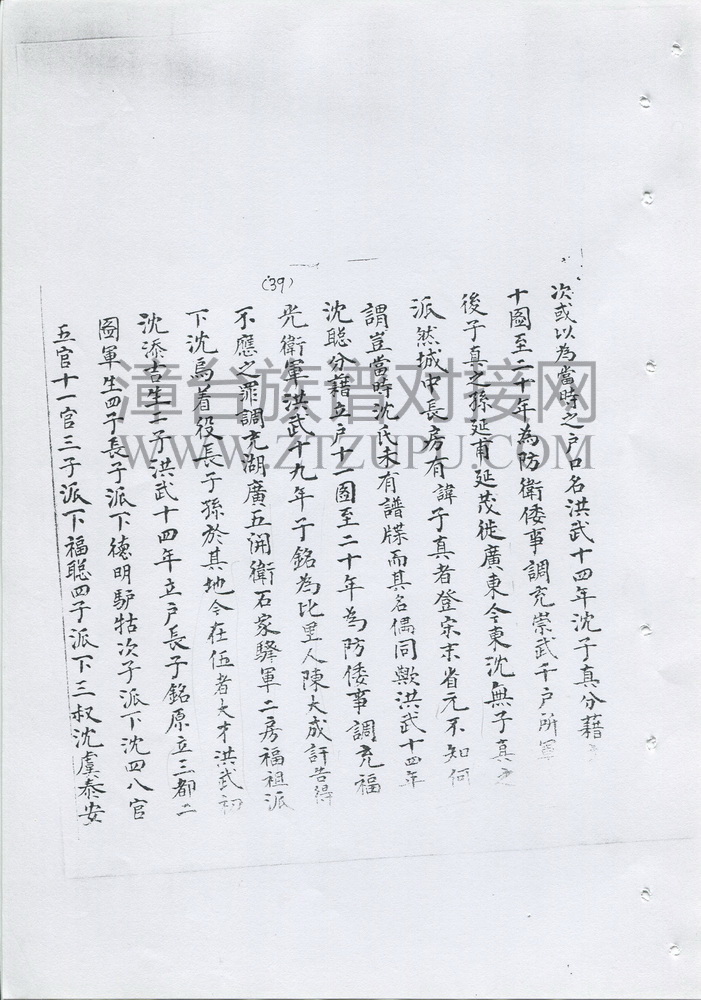 次或以為當時之戶口名洪武十四年沈子真分藉
十圖至二十年為防衛倭事調充崇武千戶所軍
後子真之孫延甫延茂徙廣東今東沈無子真之
派然城中長房有諱子真者登宋末省元不知何
謂豈當時沈氏未有譜牒而其名偶同歟洪武十四年
沈聰分藉立戶十一圖至二十年為防倭事調充福
(39)
光衛軍洪武十九年子銘為比里人陳大成訐告得
不應之罪調充湖廣五開衛石家驛軍二房福祖派
下沈烏着役長子孫於其地今在伍者大才洪武初
沈添吉生二子洪武十四年立戶長子銘原立三都二
圖軍生四子長子派下德明馿牯次子派下沈四八官
五官十一官三子派下福聰四子派下三叔沈虞泰安
漳台族谱对接网
WWW.ZTZUPU.COM